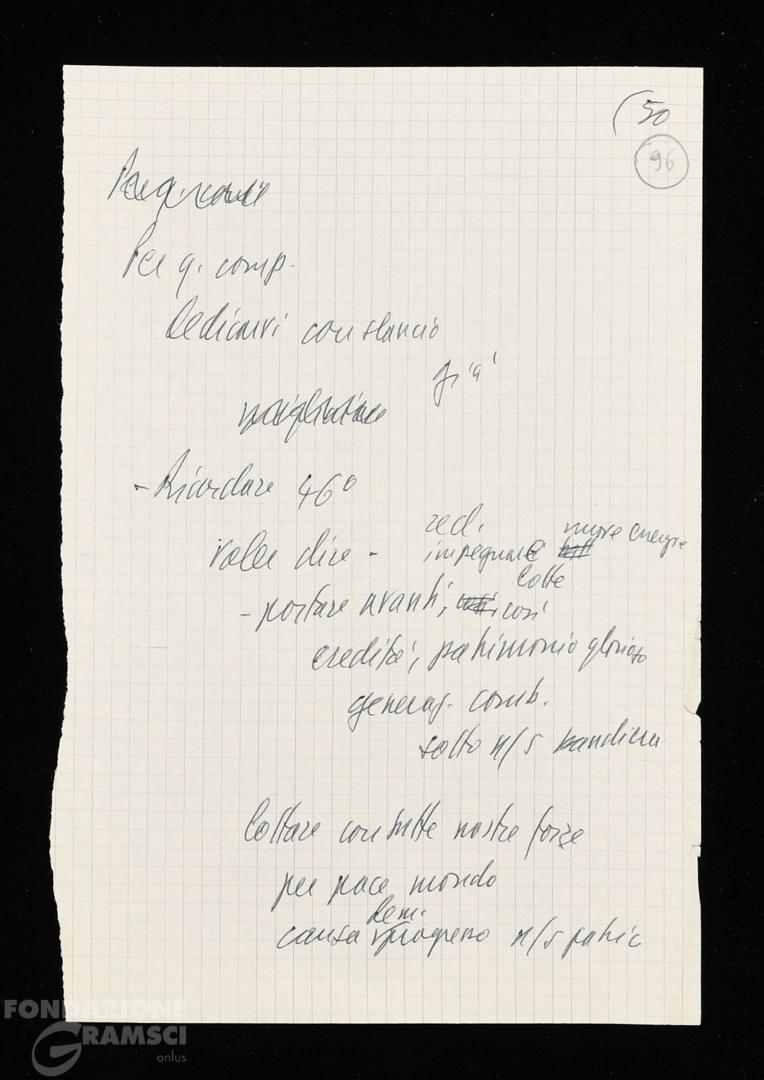 (50
96
Per q. comp.
Dedicarvi con slancio
già
- Ricordare 46°
red. nuove energie
voler dire - impegnare
lotte
- portare avanti, così
eredità, patrimonio glorioso
generaz. comb.
sotto n/s bandiera
Lottare con tutte nostre forze
per pace mondo
dem.
causa progresso n/s patria
FONDAZIONE
GRAMSCI
onlus